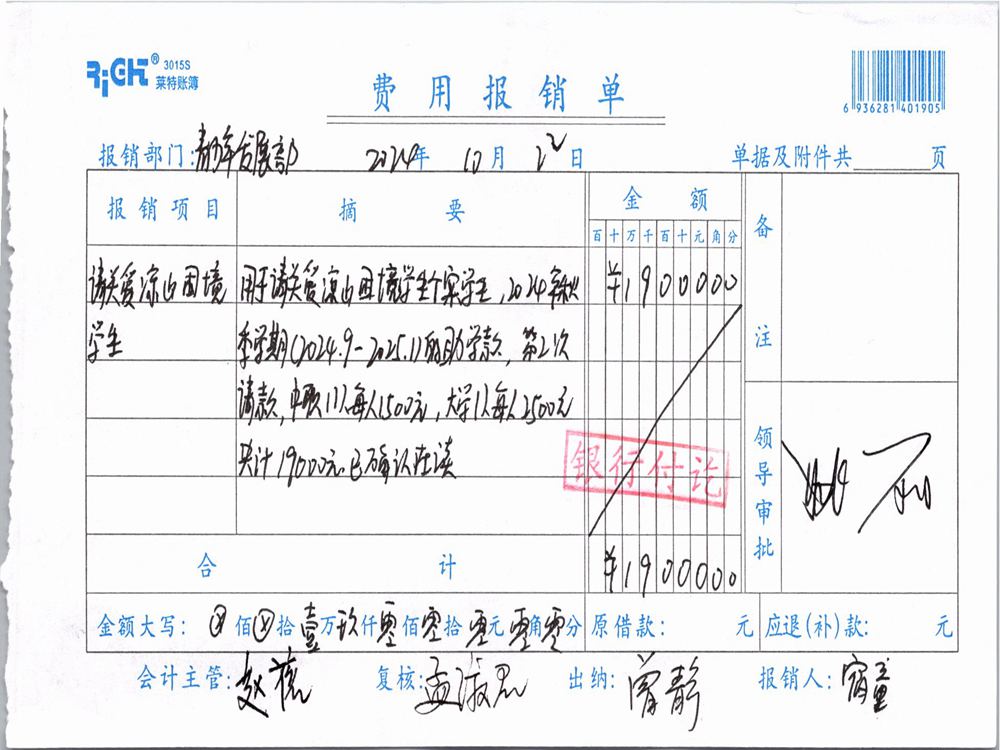 RiGHT® 3015S
莱特账簿
费用报销单
6 936281 401905
报销部门:青少年发展部 2024年 10月 22日 单据及附件共 页
报销项目 摘要 金额 备注
百十万千百十元角分
请关爱凉山困境 用于请关爱凉山困境学生个案学生,2024年秋 ¥1900000
学生 季学期(2024.9-2025.1)的助学款,第2次
请款,中职11人每人1500元,大学1人每人2500元
共计19000元.已确认在读
银行付讫
领导审批
合计 ¥1900000
金额大写: ⊗佰⊗拾壹万玖仟零佰零拾零元零角零分 原借款: 元 应退(补)款: 元
会计主管: 赵 复核:孟淑思 出纳:曾静 报销人:宿童